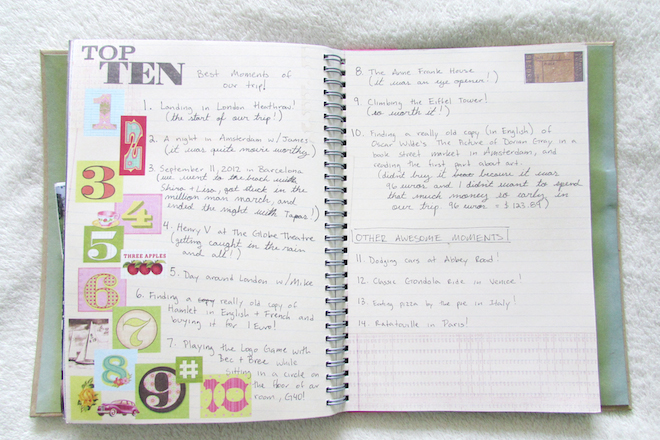 TOP
TEN
Best Moments of
our trip!
1
1. Landing in London Heathrow!
(the start of our trip!)
2
2. A night in Amsterdam w/James
(it was quite movie worthy)
3
3. September 11, 2012 in Barcelona
(we went to the beach with
Shira + Lisa, got stuck in the
million man march, and
ended the night with Tapas!)
4
4. Henry V at The Globe Theatre
(getting caught in the rain
and all!)
5
THREE APPLES
5. Day around London w/Mike
6
6. Finding a copy really old copy of
Hamlet in English + French and
buying it for 1 Euro!
7
7. Playing the Logo Game with
Bec + Bree while
sitting in a circle on
the floor of our
room, G40!
8
9
#
10
8. The Anne Frank House
(it was an eye opener!)
9. Climbing the Eiffel Tower!
(so worth it!)
10. Finding a really old copy (in English) of
Oscar Wilde's The Picture of Dorian Gray in a
book street market in Amsterdam, and
reading the first part about art.
(didn't buy it because it was
96 euros and I didn't want to spend
that much money so early in
our trip. 96 euros = $123.89)
OTHER AWESOME MOMENTS!
11. Dodging cars at Abbey Road!
12. Classic Gondola Ride in Venice!
13. Eating pizza by the pie in Italy!
14. Ratatouille in Paris!